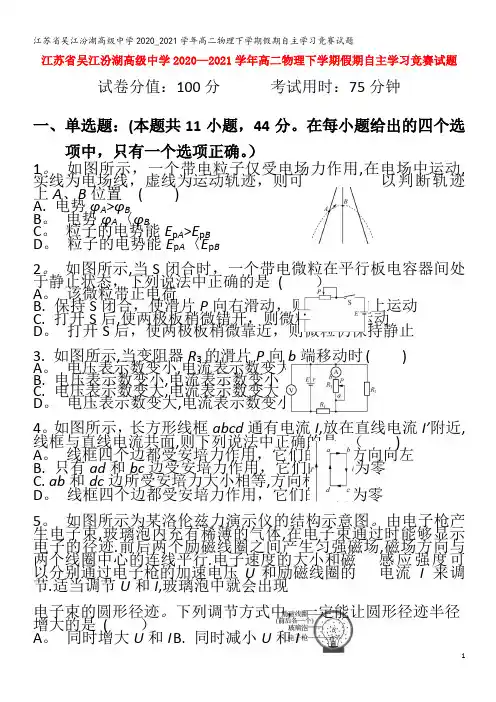 江苏省吴江汾湖高级中学2020_2021学年高二物理下学期假期自主学习竞赛试题
江苏省吴江汾湖高级中学2020—2021学年高二物理下学期假期自主学习竞赛试题
试卷分值：100分 考试用时：75分钟
一、单选题：(本题共11小题，44分。在每小题给出的四个选
项中，只有一个选项正确。）
1。 如图所示，一个带电粒子仅受电场力作用,在电场中运动,
实线为电场线，虚线为运动轨迹，则可 以判断轨迹
上A、B位置 ( )
A. 电势φA>φB
B。 电势φA〈φB
C。 粒子的电势能EpA>EpB
D。 粒子的电势能EpA〈EpB
2。 如图所示,当S闭合时，一个带电微粒在平行板电容器间处
于静止状态，下列说法中正确的是 ( )
A。 该微粒带正电荷
B. 保持S闭合，使滑片P向右滑动，则 上运动
C. 打开S后,使两极板稍微错开，则微粒 动
D。 打开S后，使两极板稍微靠近，则微粒仍保持静止
3. 如图所示,当变阻器R3的滑片P向b端移动时 ( )
A。 电压表示数变小,电流表示数变大
B. 电压表示数变小,电流表示数变小
C. 电压表示数变大,电流表示数变大
D。 电压表示数变大,电流表示数变小
4。如图所示，长方形线框abcd通有电流I,放在直线电流I′附近,
线框与直线电流共面,则下列说法中正确的是 ( )
A。 线框四个边都受安培力作用，它们的 方向向左
B. 只有ad和bc边受安培力作用，它们的 为零
C. ab和dc边所受安培力大小相等,方向相
D。 线框四个边都受安培力作用，它们的 为零
5。 如图所示为某洛伦兹力演示仪的结构示意图。由电子枪产
生电子束,玻璃泡内充有稀薄的气体,在电子束通过时能够显示
电子的径迹.前后两个励磁线圈之间产生匀强磁场,磁场方向与
两个线圈中心的连线平行.电子速度的大小和磁 感应强度可
以分别通过电子枪的加速电压U和励磁线圈的 电流I来调
节.适当调节U和I,玻璃泡中就会出现
电子束的圆形径迹。下列调节方式中，一定能让圆形径迹半径
增大的是 ( )
A。 同时增大U和I B. 同时减小U和I
1